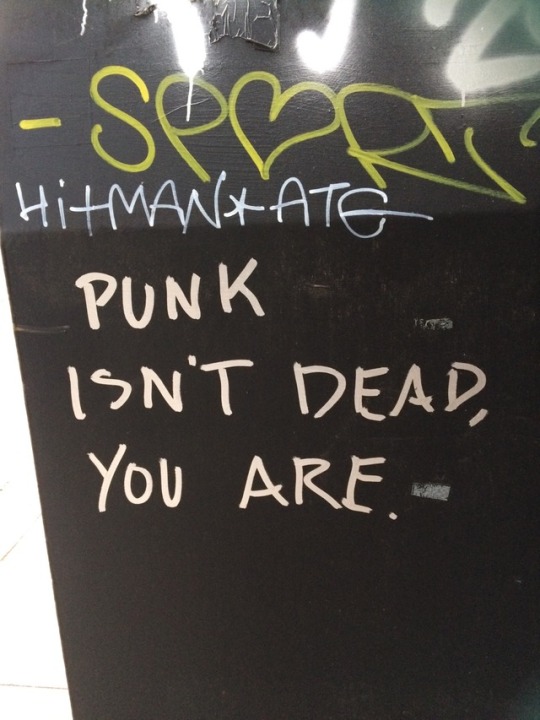 -SP♡RT
HiTMAN*ATG
PUNK
ISN'T DEAD,
YOU ARE.